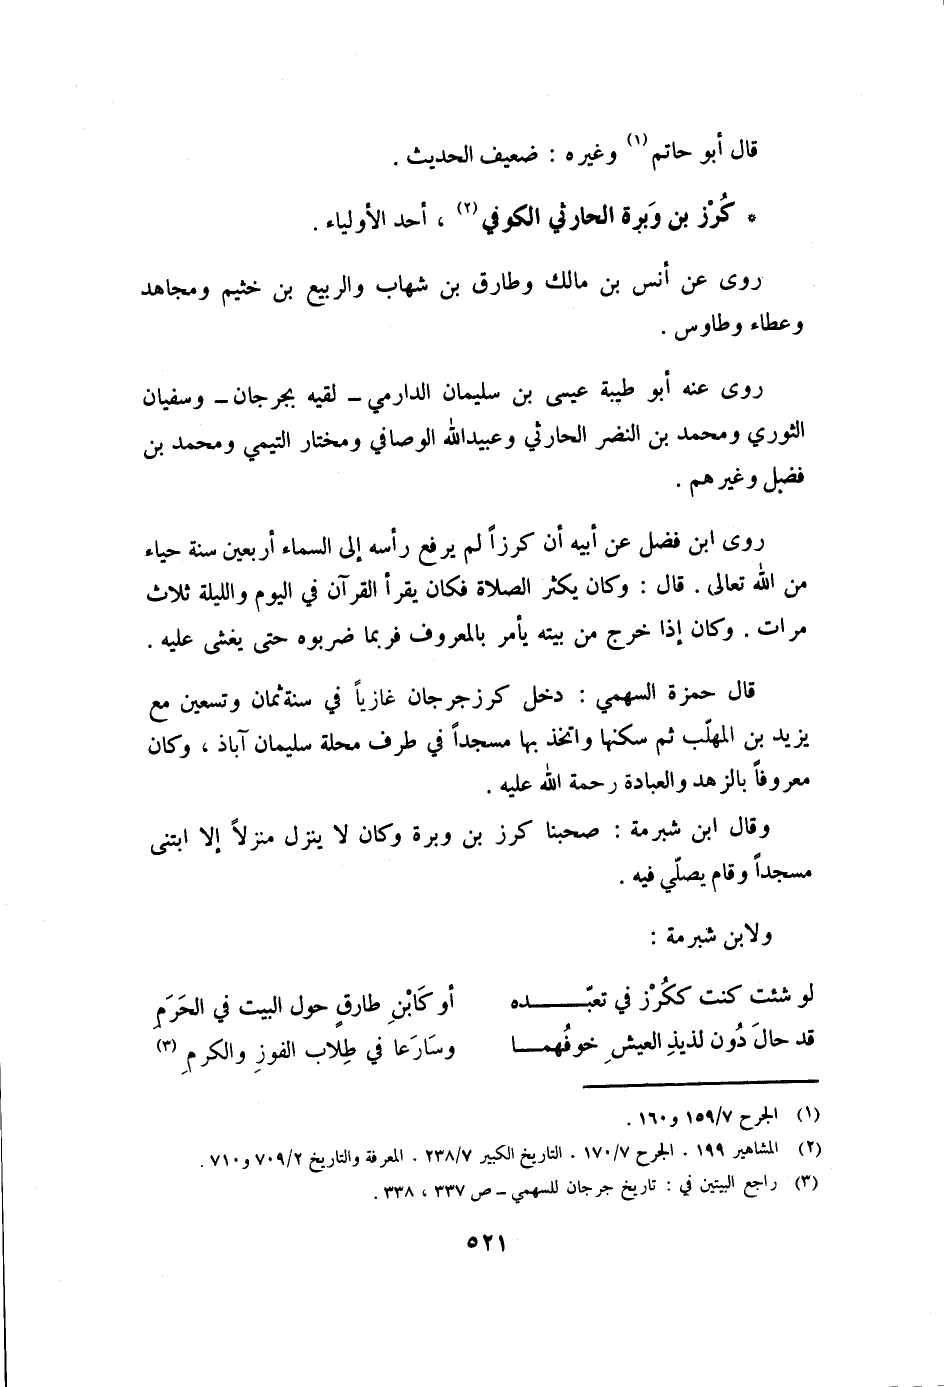 قال أبو حاتم (١) وغيره : ضعيف الحديث .
* كُرْز بن وَبرة الحارثي الكوفي (٢) ، أحد الأولياء .
روى عن أنس بن مالك وطارق بن شهاب والربيع بن خثيم ومجاهد
وعطاء وطاوس .
روى عنه أبو طيبة عيسى بن سليمان الدارمي - لقيه بجرجان - وسفيان
الثوري ومحمد بن النضر الحارثي وعبيدالله الوصافي ومختار التيمي ومحمد بن
فضيل وغيرهم .
روى ابن فضل عن أبيه أن كرزاً لم يرفع رأسه إلى السماء أربعين سنة حياء
من الله تعالى . قال : وكان يكثر الصلاة فكان يقرأ القرآن في اليوم والليلة ثلاث
مرات . وكان إذا خرج من بيته يأمر بالمعروف فربما ضربوه حتى يغشى عليه .
قال حمزة السهمي : دخل كرز جرجان غازياً في سنة ثمان وتسعين مع
يزيد بن المهلّب ثم سكنها واتخذ بها مسجداً في طرف محلة سليمان آباذ ، وكان
معروفاً بالزهد والعبادة رحمة الله عليه .
وقال ابن شبرمة : صحبنا كرز بن وبرة وكان لا ينزل منزلاً إلا ابتنى
مسجداً وقام يصلّي فيه .
ولابن شبرمة :
لو شئت كنت ككُرْز في تعبّـــــده أو كَابْنِ طارقٍ حول البيت في الحَرَمِ
قد حالَ دُون لذيذِ العيشِ خوفُهمـــا وسَارَعا في طِلاب الفوزِ والكرمِ (٣)
(١) الجرح ١٥٩/٧ و١٦٠ .
(٢) المشاهير ١٩٩ . الجرح ١٧٠/٧ . التاريخ الكبير ٢٣٨/٧ . المعرفة والتاريخ ٧٠٩/٢ و٧١٠ .
(٣) راجع البيتين في : تاريخ جرجان للسهمي - ص ٣٣٧ ، ٣٣٨ .
٥٢١